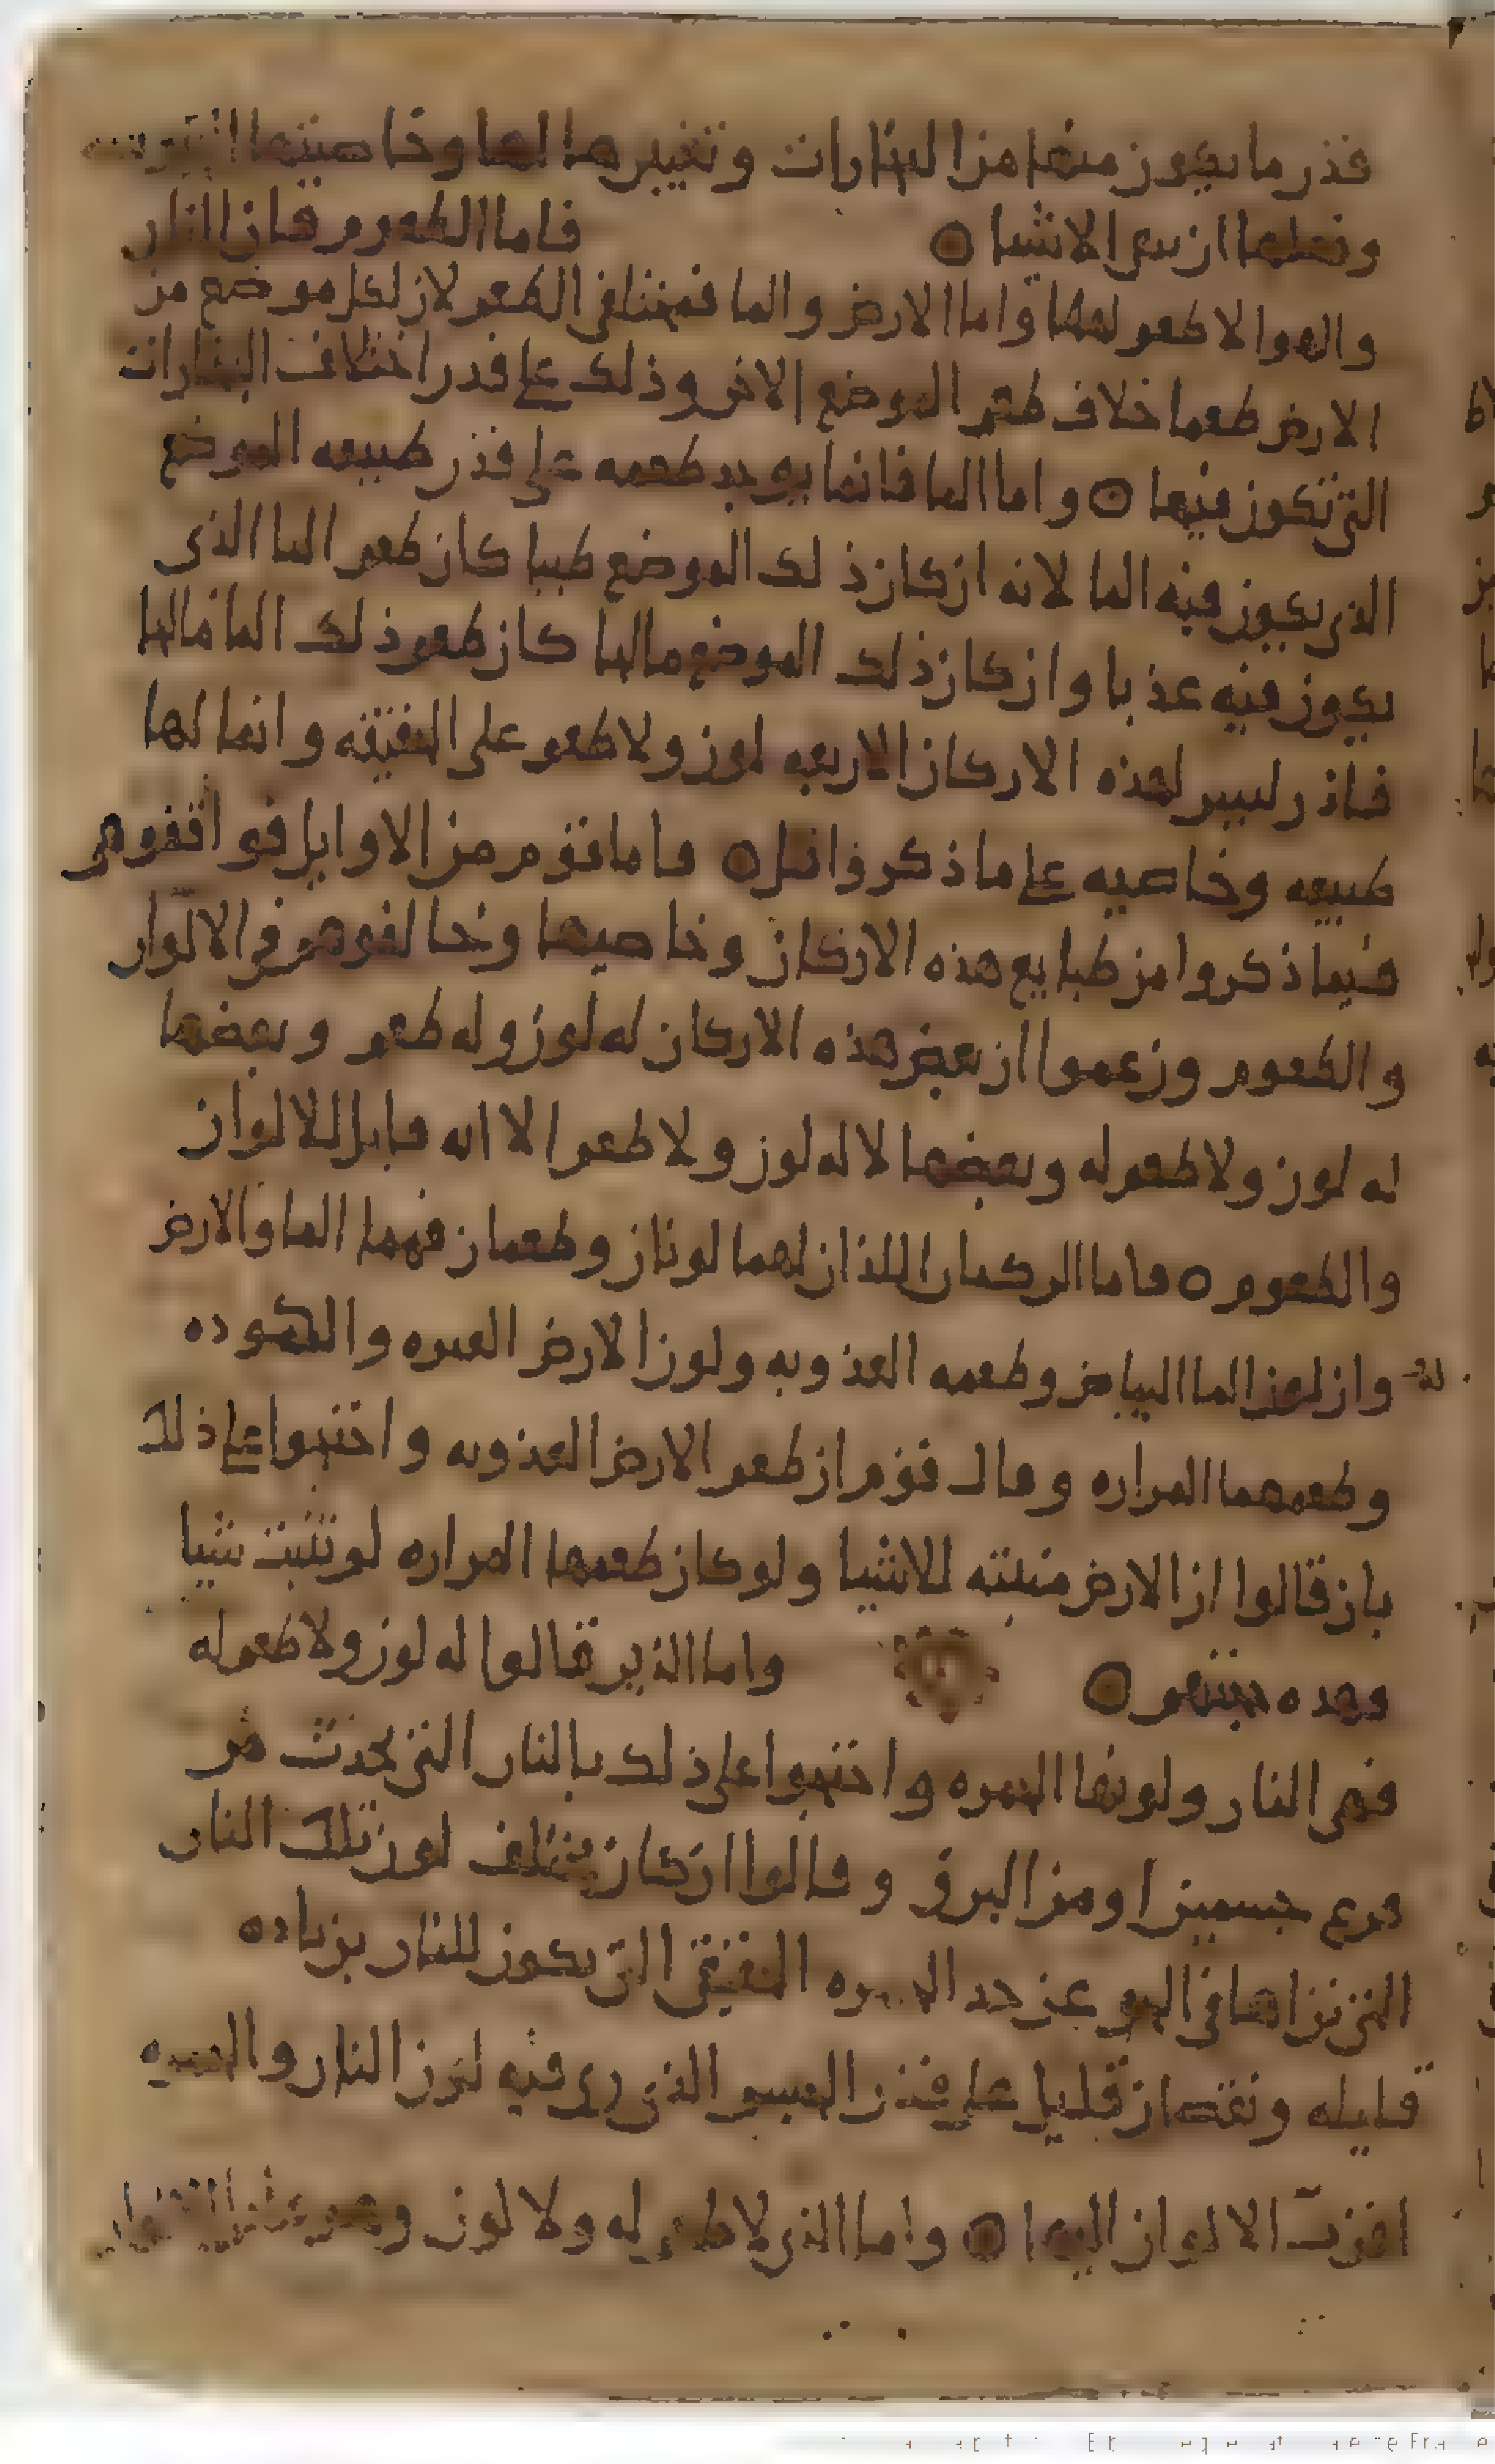 قدر ما يكون منها من البخارات وتغييرها لها وخاصيتها
وفعلها ان يدعى الاشيا ٥ فاما الطعوم فان النار
والهوا لا طعم لهما واما الارض والما فمختلفى الطعم لان لكل موضع من
الارض طعما خلاف طعم الموضع الاخر وذلك على قدر اختلاف البخارات
التى تكون فيها ٥ واما الما فانما يوجد طعمه على قدر طبيعه الموضع
الذى يكون فيه الما لانه ان كان ذلك الموضع طيبا كان طعم الما الذى
يكون فيه عذبا وان كان ذلك الموضع مالحا كان طعم ذلك الما مالحا
فاذن ليس لهذه الاركان الاربعه لون ولا طعم على الحقيقه وانما لها
طبيعه وخاصيه على ما ذكرنا قبل ٥ فاما قوم من الاوايل فوافقوهم
فيما ذكروا من طبايع هذه الاركان وخاصيتها وخالفوهم فى الالوان
والطعوم وزعموا ان بعض هذه الاركان له لون وله طعم وبعضها
له لون ولا طعم له وبعضها لا له لون ولا طعم الا انه قابل للالوان
والطعوم ٥ فاما الركنان اللذان لهما لونان وطعمان فهما الما والارض
وان لون الما البياض وطعمه العذوبه ولون الارض الغبره والكموده
وطعمهما المراره وقال قوم ان طعم الارض العذوبه واحتجوا على ذلك
بان قالوا ان الارض منبته للاشيا ولو كان طعمها المراره لم تنبت شيا
وهذه حجتهم ٥ واما الذين قالوا له لون ولا طعم له
فهى النار ولونها الحمره واحتجوا على ذلك بالنار التى تحدث من
قرع جسمين او من البرق وقالوا ان كان يختلف لون تلك النار
التى نراها فى الجو عن حد الحمره الحقيقى التى يكون للنار بزياده
قليله ونقصان قليل على قدر الجسم الذى رى فيه لون النار والحمره
اقرب الالوان اليها ٥ واما الذى لا طعم له ولا لون وهو